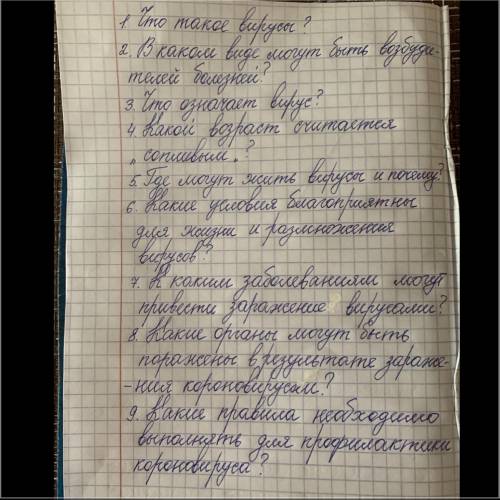 1. Что такое вирусы?
2. В каком виде могут быть возбуди-
телей болезней?
3. Что означает вирус?
4. Какой возраст считается
„сопливым„?
5. Где могут жить вирусы и почему?
6. Какие условия благоприятны
для жизни и размножения
вирусов?
7. К каким заболеваниям могут
привести заражение вирусами?
8. Какие органы могут быть
поражены в результате зараже-
-ния короновирусом?
9. Какие правила необходимо
выполнять для профилактики
короновируса?